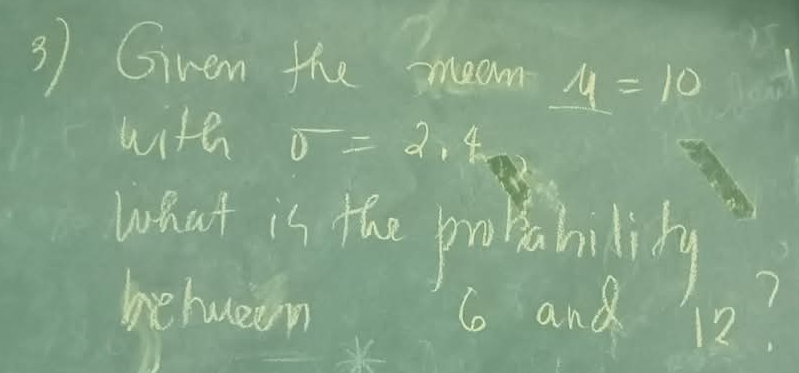 3) Given the mean μ = 10
with σ = 2.4
What is the probability
between 6 and 12?